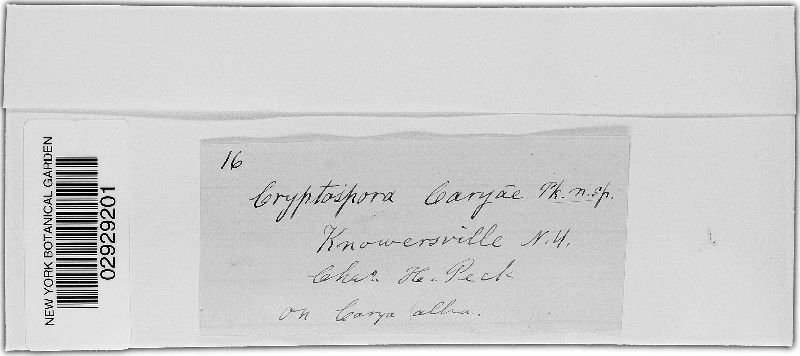 NEW YORK BOTANICAL GARDEN
02929201
16
Cryptospora Caryae Pk. n. sp.
Knowersville N.Y.
Chas. H. Peck
on Carya alba.